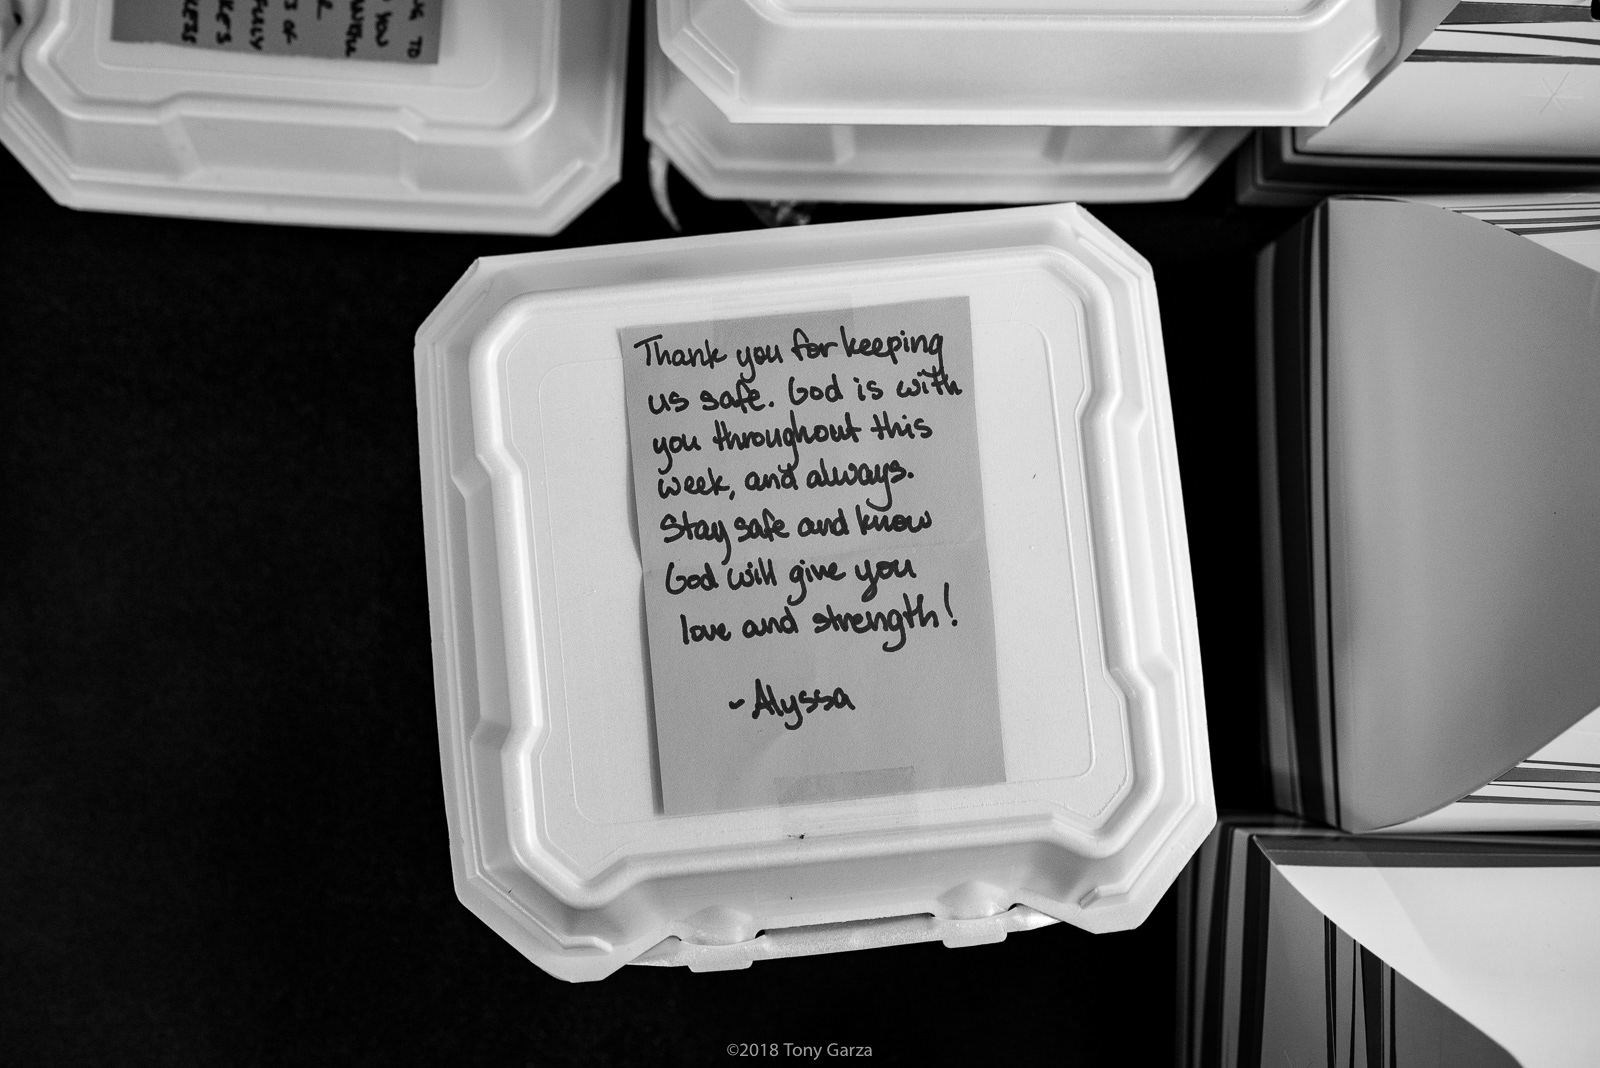 Thank you for keeping
us safe. God is with
you throughout this
week, and always.
Stay safe and know
God will give you
love and strength!
- Alyssa
©2018 Tony Garza